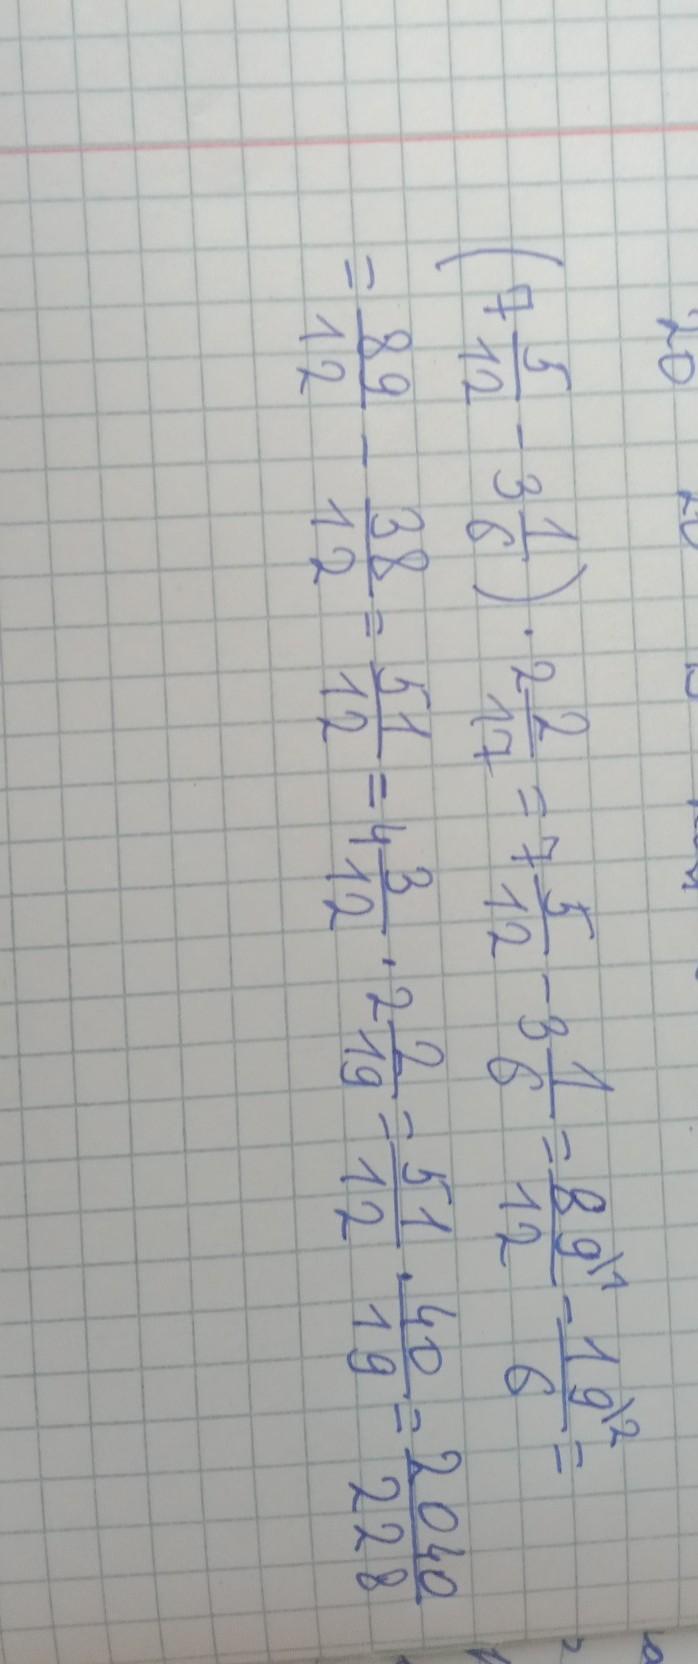 20 20
(7 5/12 - 3 1/6) · 2 2/17 = 7 5/12 - 3 1/6 = 89\1/12 - 19\2/6 =
= 89/12 - 38/12 = 51/12 = 4 3/12 · 2 2/19 = 51/12 · 40/19 = 2040/228